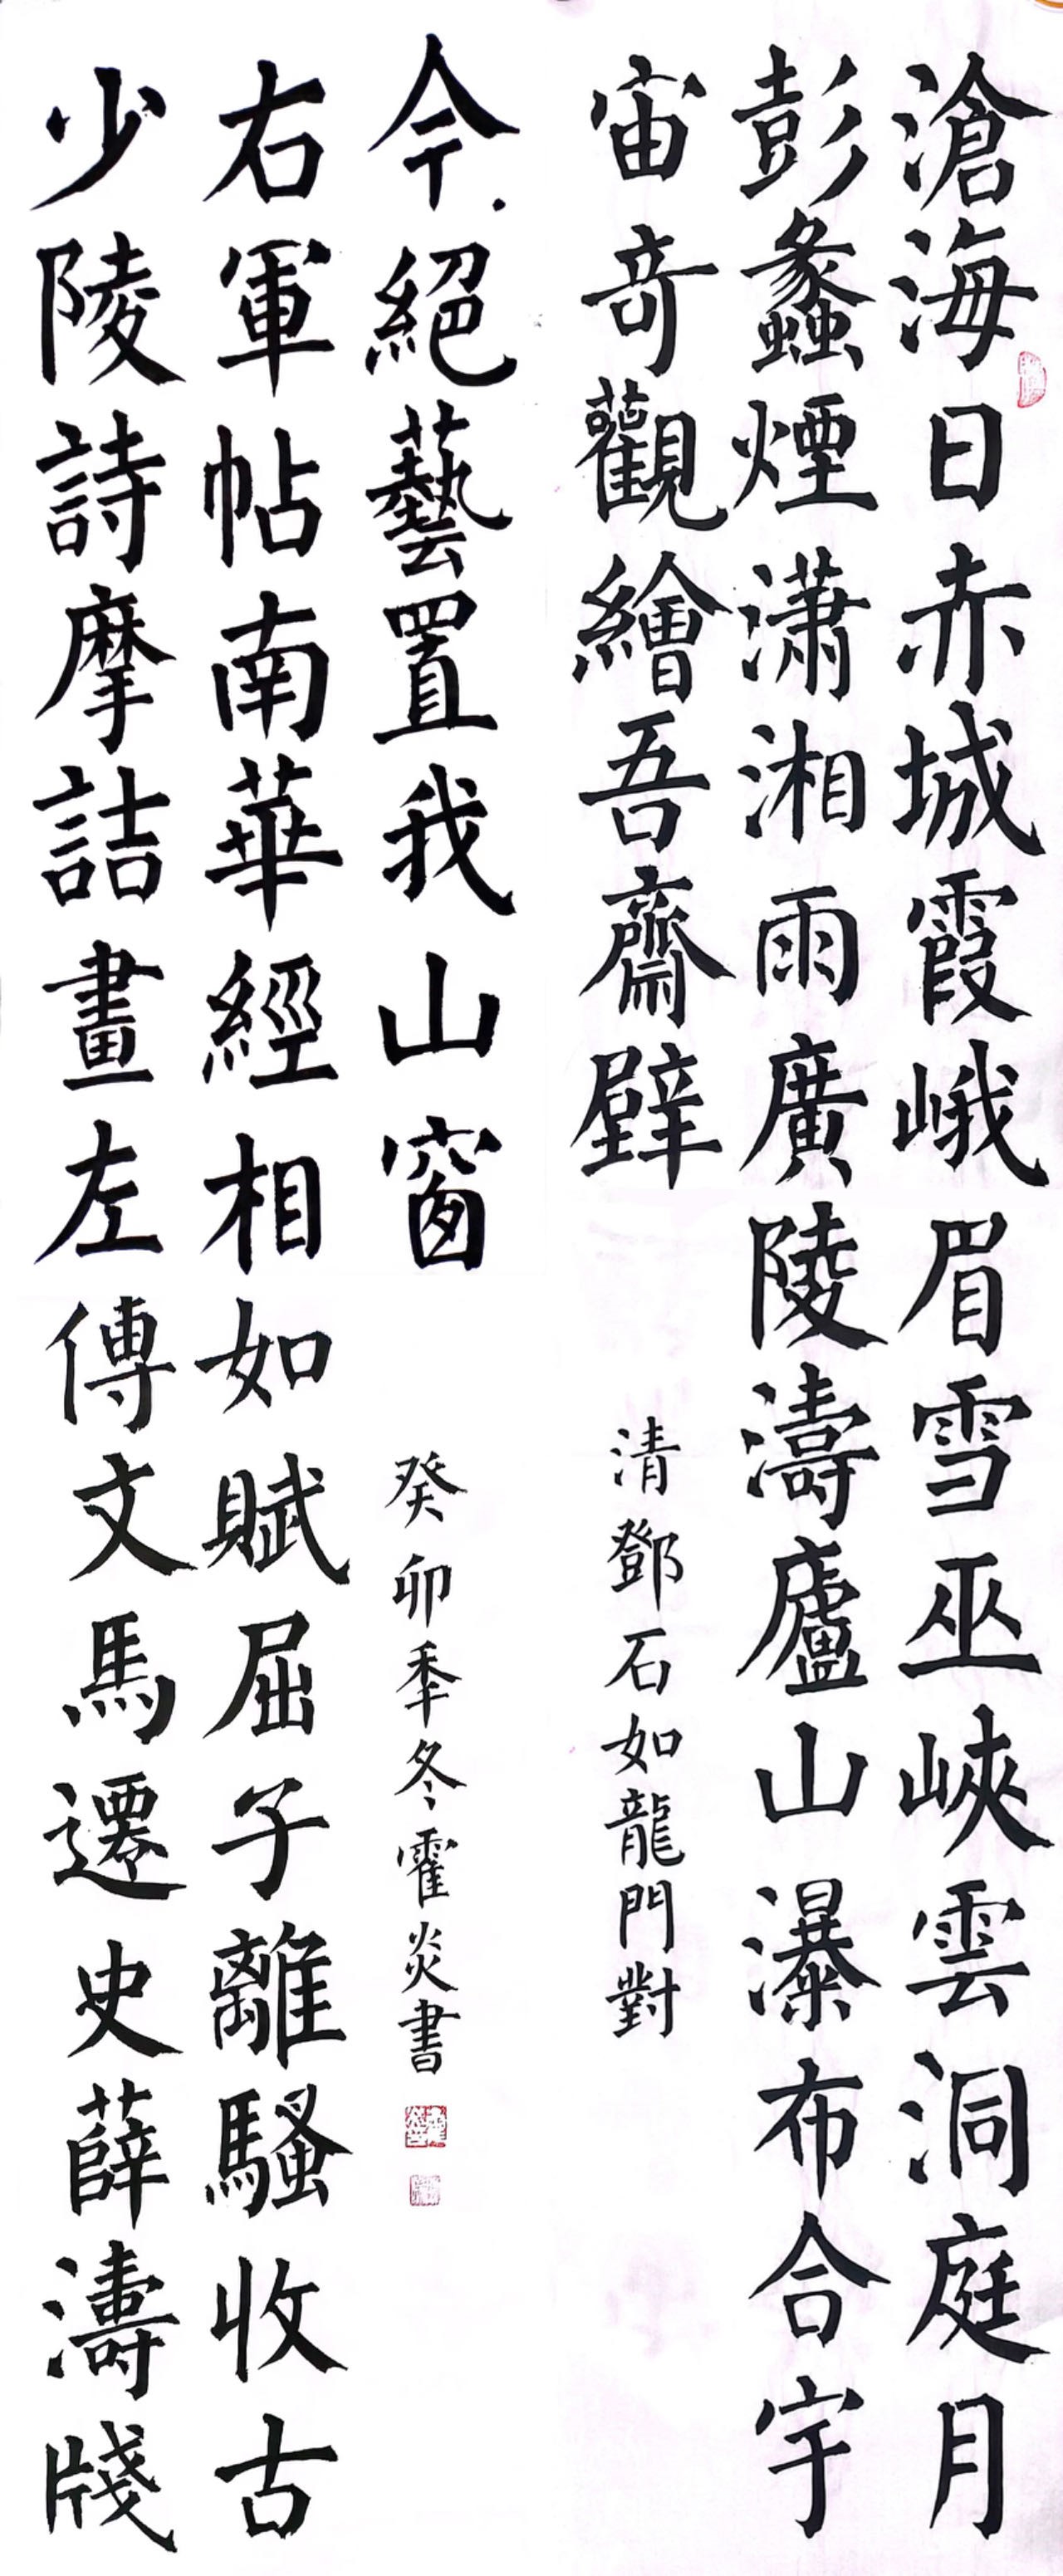 滄海日赤城霞峨眉雪巫峽雲洞庭月
彭蠡煙潇湘雨廣陵濤廬山瀑布合宇
宙奇觀繪吾齋壁
清鄧石如龍門對
少陵詩摩詰畫左傳文馬遷史薛濤牋
右軍帖南華經相如賦屈子離騷收古
今絕藝置我山窗
癸卯秊冬霍炎書